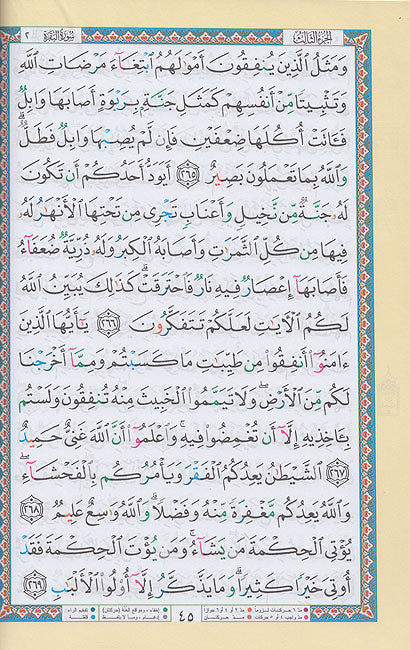 الجزء الثالث
سورة البقرة
٢
وَمَثَلُ ٱلَّذِينَ يُنفِقُونَ أَمْوَٰلَهُمُ ٱبْتِغَآءَ مَرْضَاتِ ٱللَّهِ
وَتَثْبِيتًا مِّنْ أَنفُسِهِمْ كَمَثَلِ جَنَّةٍۭ بِرَبْوَةٍ أَصَابَهَا وَابِلٌ
فَـَٔاتَتْ أُكُلَهَا ضِعْفَيْنِ فَإِن لَّمْ يُصِبْهَا وَابِلٌ فَطَلٌّ ۗ
وَٱللَّهُ بِمَا تَعْمَلُونَ بَصِيرٌ ٢٦٥ أَيَوَدُّ أَحَدُكُمْ أَن تَكُونَ
لَهُۥ جَنَّةٌ مِّن نَّخِيلٍ وَأَعْنَابٍ تَجْرِى مِن تَحْتِهَا ٱلْأَنْهَٰرُ لَهُۥ
فِيهَا مِن كُلِّ ٱلثَّمَرَٰتِ وَأَصَابَهُ ٱلْكِبَرُ وَلَهُۥ ذُرِّيَّةٌ ضُعَفَآءُ
فَأَصَابَهَآ إِعْصَارٌ فِيهِ نَارٌ فَٱحْتَرَقَتْ ۗ كَذَٰلِكَ يُبَيِّنُ ٱللَّهُ
لَكُمُ ٱلْـَٔايَٰتِ لَعَلَّكُمْ تَتَفَكَّرُونَ ٢٦٦ يَٰٓأَيُّهَا ٱلَّذِينَ
ءَامَنُوٓا۟ أَنفِقُوا۟ مِن طَيِّبَٰتِ مَا كَسَبْتُمْ وَمِمَّآ أَخْرَجْنَا
لَكُم مِّنَ ٱلْأَرْضِ ۖ وَلَا تَيَمَّمُوا۟ ٱلْخَبِيثَ مِنْهُ تُنفِقُونَ وَلَسْتُم
بِـَٔاخِذِيهِ إِلَّآ أَن تُغْمِضُوا۟ فِيهِ ۚ وَٱعْلَمُوٓا۟ أَنَّ ٱللَّهَ غَنِىٌّ حَمِيدٌ
٢٦٧ ٱلشَّيْطَٰنُ يَعِدُكُمُ ٱلْفَقْرَ وَيَأْمُرُكُم بِٱلْفَحْشَآءِ ۖ
وَٱللَّهُ يَعِدُكُم مَّغْفِرَةً مِّنْهُ وَفَضْلًا ۗ وَٱللَّهُ وَٰسِعٌ عَلِيمٌ ٢٦٨
يُؤْتِى ٱلْحِكْمَةَ مَن يَشَآءُ ۚ وَمَن يُؤْتَ ٱلْحِكْمَةَ فَقَدْ
أُوتِىَ خَيْرًا كَثِيرًا ۗ وَمَا يَذَّكَّرُ إِلَّآ أُو۟لُوا۟ ٱلْأَلْبَٰبِ ٢٦٩
٤٥